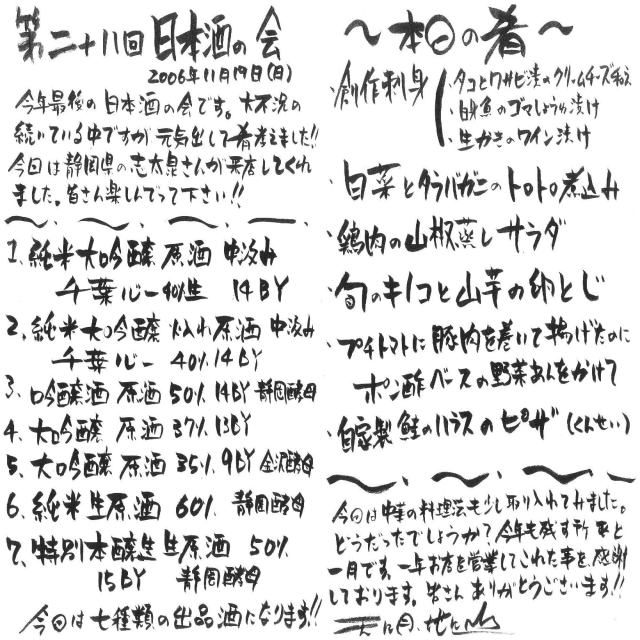 第二十八回 日本酒の会
2006年11月19日(日)
今年最後の日本酒の会です。大不況の
続いている中ですが 元気出して肴考えました!!
今日は静岡県の志太泉さんが来店してくれ
ました。皆さん楽しんでって下さい!!
1、純米大吟醸 原酒 中汲み
千葉心一 40%生 14BY
2、純米大吟醸 火入れ原酒 中汲み
千葉心一 40% 14BY
3、吟醸酒 原酒 50% 14BY 静岡酵母
4、大吟醸 原酒 37% 13BY
5、大吟醸 原酒 35% 9BY 金沢酵母
6、純米生原酒 60% 静岡酵母
7、特別本醸生生原酒 50%
15BY 静岡酵母
今回は七種類の出品酒になります!!
〜本日の肴〜
・創作刺身
・タコとワサビ漬のクリームチーズ和え
・白身魚のゴマしょうゆ漬け
・生かきのワイン漬け
・白菜とタラバガニのトロトロ煮込み
・鶏肉の山椒蒸しサラダ
・旬のキノコと山芋の卵とじ
・プチトマトに豚肉を巻いて揚げたのに
ポン酢ベースの野菜あんをかけて
・自家製 鮭のハラスのピザ (くんせい)
今回は中華の料理法も少し取り入れてみました。
どうだったでしょうか? 今年も残す所 あと
一月です。一年お店を営業してこれた事を感謝
しております。皆さん ありがとうございます!!
天に月、地に山